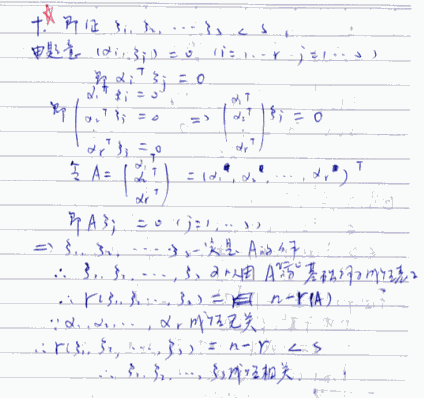 十. 即证 ξ₁, ξ₂, ⋯ ξₛ < s,
由题意 (αᵢ, ξⱼ) = 0 (i=1⋯r j=1⋯s)
即 αᵢᵀ ξⱼ = 0
即 { α₁ᵀ ξⱼ = 0
α₂ᵀ ξⱼ = 0
⋮
αᵣᵀ ξⱼ = 0 ⇒ ( α₁ᵀ α₂ᵀ ⋮ αᵣᵀ ) ξⱼ = 0
令 A = ( α₁ᵀ α₂ᵀ ⋮ αᵣᵀ ) = (α₁, α₂, ⋯, αᵣ)ᵀ
即 Aξⱼ = 0 (j=1, ⋯s)
⇒ ξ₁, ξ₂, ⋯ ξₛ一定是A的解
∴ ξ₁, ξ₂, ⋯, ξₛ 可以用A 基础解系线性表示
∴ r(ξ₁, ξ₂, ⋯, ξₛ) = n-r(A)
∵ α₁, α₂, ⋯, αᵣ 线性无关
∴ r(ξ₁, ξ₂, ⋯, ξₛ) = n-r < s
∴ ξ₁, ξ₂, ⋯, ξₛ线性相关.